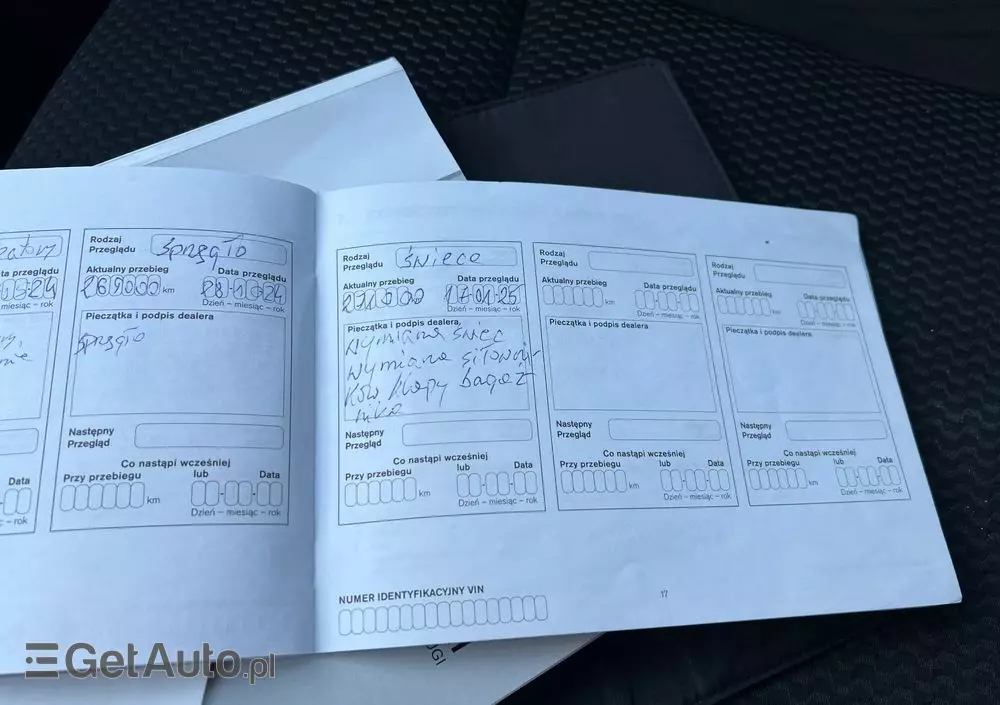 Rodzaj
Przeglądu
sprzęgło
Aktualny przebieg
Data przeglądu
269000 km
28-10-24
Dzień – miesiąc – rok
Pieczątka i podpis dealera
sprzęgło
Następny
Przegląd
Co nastąpi wcześniej
Przy przebiegu
lub
Data
km
Dzień – miesiąc – rok
Data
Rodzaj
Przeglądu
świece
Aktualny przebieg
Data przeglądu
271000
km
17-01-25
Dzień – miesiąc – rok
Pieczątka i podpis dealera
wymiana świec
wymiana siłowni-
ków klapy bagaż
nika
Następny
Przegląd
Co nastąpi wcześniej
Przy przebiegu
lub
Data
km
Dzień – miesiąc – rok
Rodzaj
Przeglądu
Aktualny przebieg
Data przeglądu
km
Dzień – miesiąc – rok
Pieczątka i podpis dealera
Następny
Przegląd
Co nastąpi wcześniej
Przy przebiegu
lub
Data
km
Dzień – miesiąc – rok
Rodzaj
Przeglądu
Aktualny przebieg
Data przeglądu
km
Dzień – miesiąc – rok
Pieczątka i podpis dealera
Następny
Przegląd
Co nastąpi wcześniej
Przy przebiegu
lub
Data
km
Dzień – miesiąc – rok
NUMER IDENTYFIKACYJNY VIN
17
GetAuto.pl